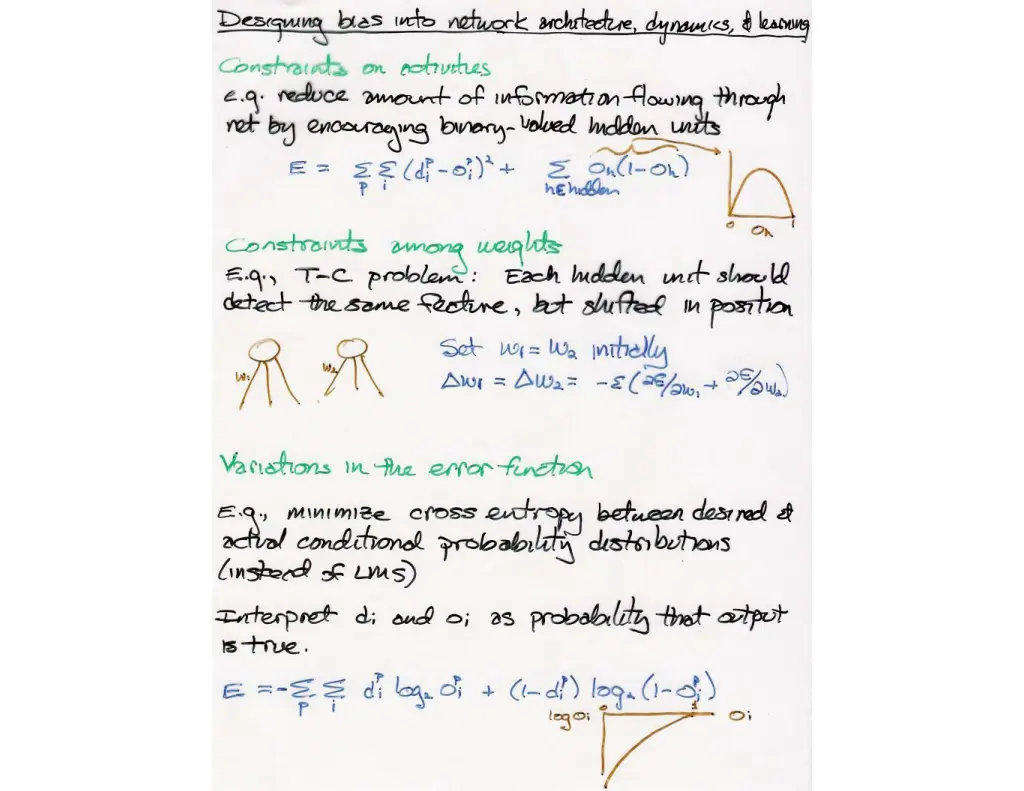 Designing bias into network architecture, dynamics, & learning
Constraints on activities
e.g. reduce amount of information flowing through
net by encouraging binary-valued hidden units
E = Σp Σi (di^p - oi^p)² + Σh∈hidden oh(1-oh)
0 oh 1
Constraints among weights
E.g., T-C problem: Each hidden unit should
detect the same feature, but shifted in position
w1 w2
Set w1 = w2 initially
Δw1 = Δw2 = -ε(∂E/∂w1 + ∂E/∂w2)
Variations in the error function
E.g., minimize cross entropy between desired &
actual conditional probability distributions
(instead of LMS)
Interpret di and oi as probability that output
is true.
E = -Σp Σi di^p log2 oi^p + (1-di^p) log2 (1-oi^p)
log oi 0 1 oi